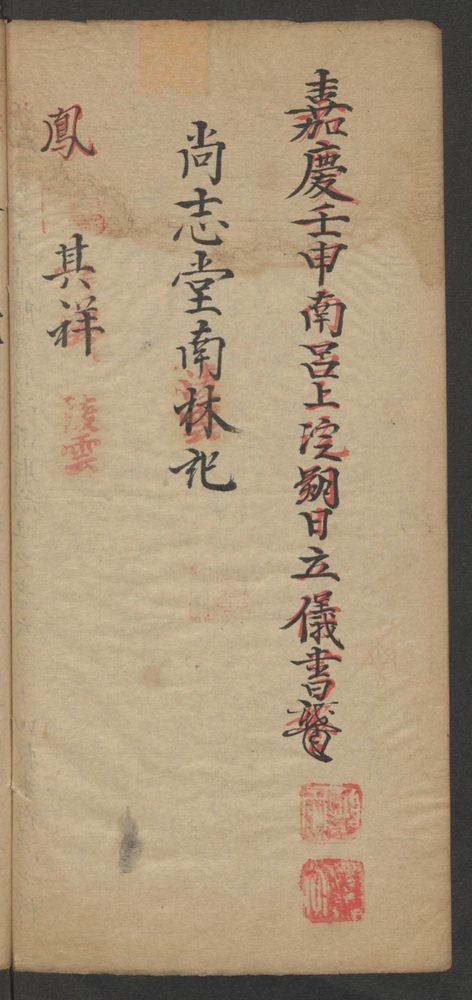 嘉慶壬申南呂上浣朔日立儀書
尚志堂南林記
鳳 其祥 凌雲